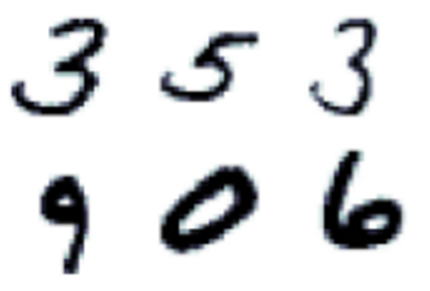 3 5 3
9 0 6